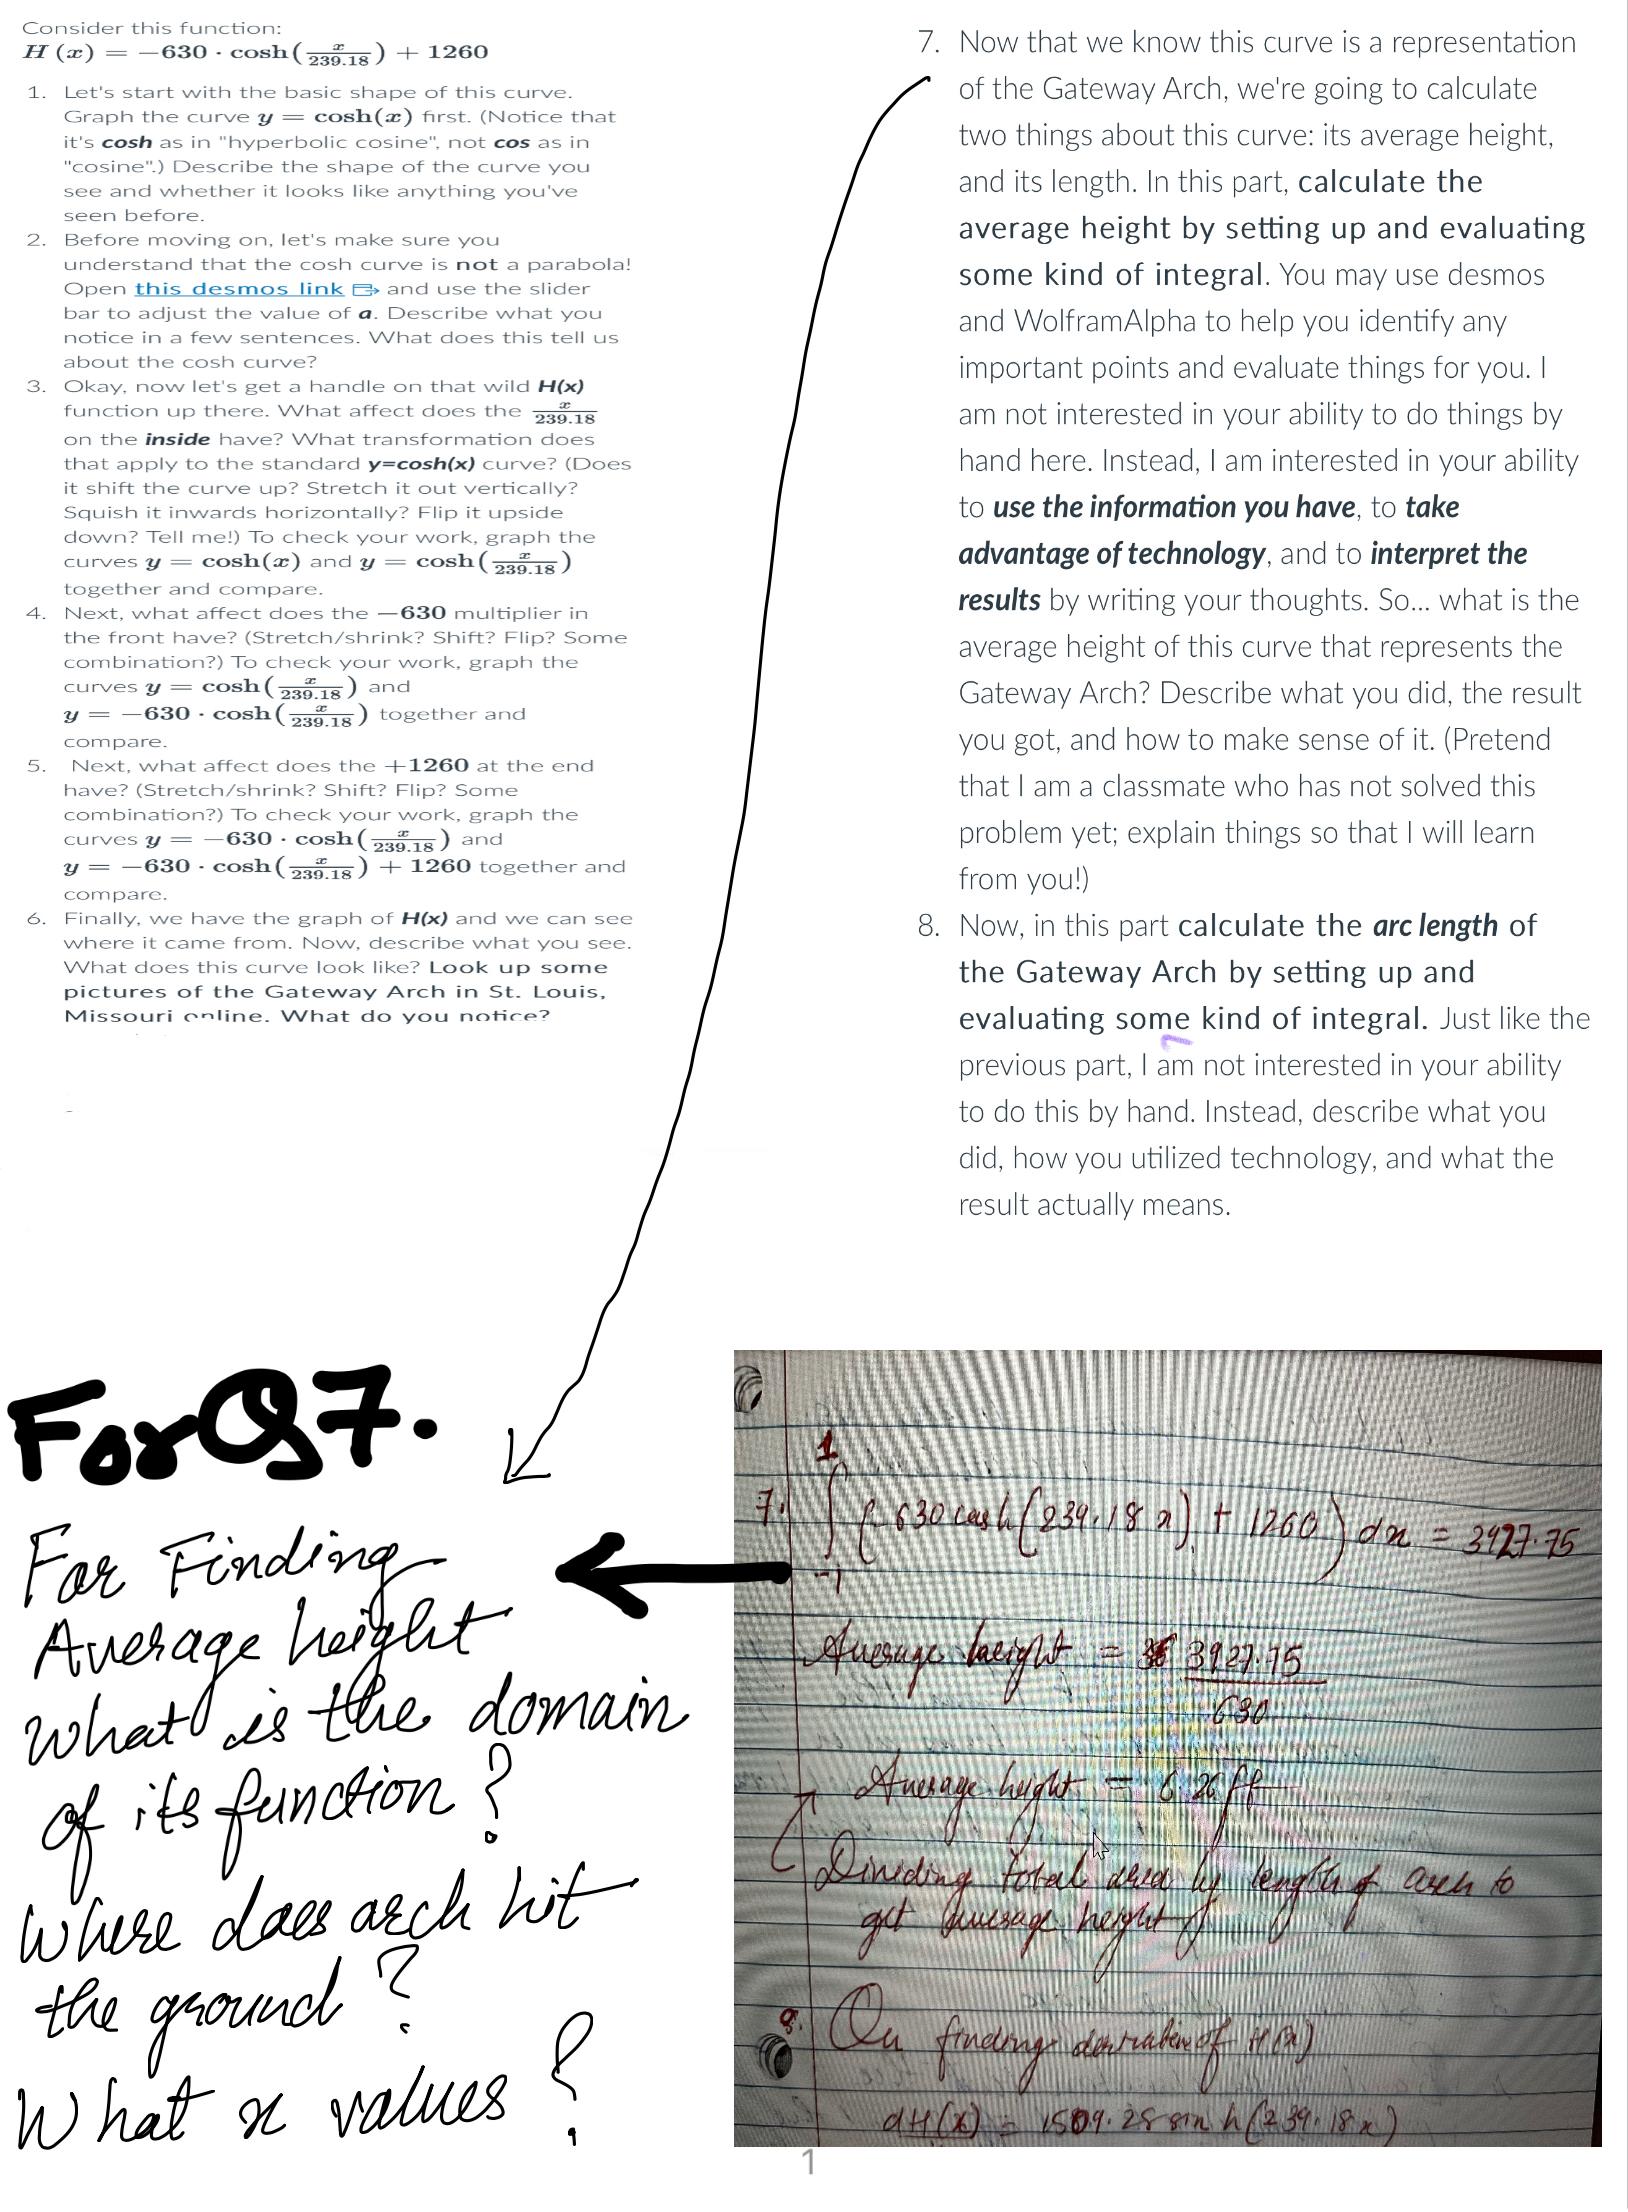 Consider this function:
H (x) = −630 · cosh(x/239.18) + 1260
1. Let's start with the basic shape of this curve.
Graph the curve y = cosh(x) first. (Notice that
it's cosh as in "hyperbolic cosine", not cos as in
"cosine".) Describe the shape of the curve you
see and whether it looks like anything you've
seen before.
2. Before moving on, let's make sure you
understand that the cosh curve is not a parabola!
Open this desmos link and use the slider
bar to adjust the value of a. Describe what you
notice in a few sentences. What does this tell us
about the cosh curve?
3. Okay, now let's get a handle on that wild H(x)
function up there. What affect does the x/239.18
on the inside have? What transformation does
that apply to the standard y=cosh(x) curve? (Does
it shift the curve up? Stretch it out vertically?
Squish it inwards horizontally? Flip it upside
down? Tell me!) To check your work, graph the
curves y = cosh(x) and y = cosh(x/239.18)
together and compare.
4. Next, what affect does the −630 multiplier in
the front have? (Stretch/shrink? Shift? Flip? Some
combination?) To check your work, graph the
curves y = cosh(x/239.18) and
y = −630 · cosh(x/239.18) together and
compare.
5. Next, what affect does the +1260 at the end
have? (Stretch/shrink? Shift? Flip? Some
combination?) To check your work, graph the
curves y = −630 · cosh(x/239.18) and
y = −630 · cosh(x/239.18) + 1260 together and
compare.
6. Finally, we have the graph of H(x) and we can see
where it came from. Now, describe what you see.
What does this curve look like? Look up some
pictures of the Gateway Arch in St. Louis,
Missouri online. What do you notice?
7. Now that we know this curve is a representation
of the Gateway Arch, we're going to calculate
two things about this curve: its average height,
and its length. In this part, calculate the
average height by setting up and evaluating
some kind of integral. You may use desmos
and WolframAlpha to help you identify any
important points and evaluate things for you. I
am not interested in your ability to do things by
hand here. Instead, I am interested in your ability
to use the information you have, to take
advantage of technology, and to interpret the
results by writing your thoughts. So... what is the
average height of this curve that represents the
Gateway Arch? Describe what you did, the result
you got, and how to make sense of it. (Pretend
that I am a classmate who has not solved this
problem yet; explain things so that I will learn
from you!)
8. Now, in this part calculate the arc length of
the Gateway Arch by setting up and
evaluating some kind of integral. Just like the
previous part, I am not interested in your ability
to do this by hand. Instead, describe what you
did, how you utilized technology, and what the
result actually means.
For Q7.
For Finding
Average height
what is the domain
of its function?
Where does arch hit
the ground?
What x values?
7. ∫_{-1}^{1} (-630 cosh(239.18 x) + 1260) dx = 3927.75
Average height = 3927.75/630
Average height = 6.26 ft
Dividing total area by length of arch to
get average height
8. On finding derivative of H(x)
dH(x) = 1509.28 sin h(239.18x)
1